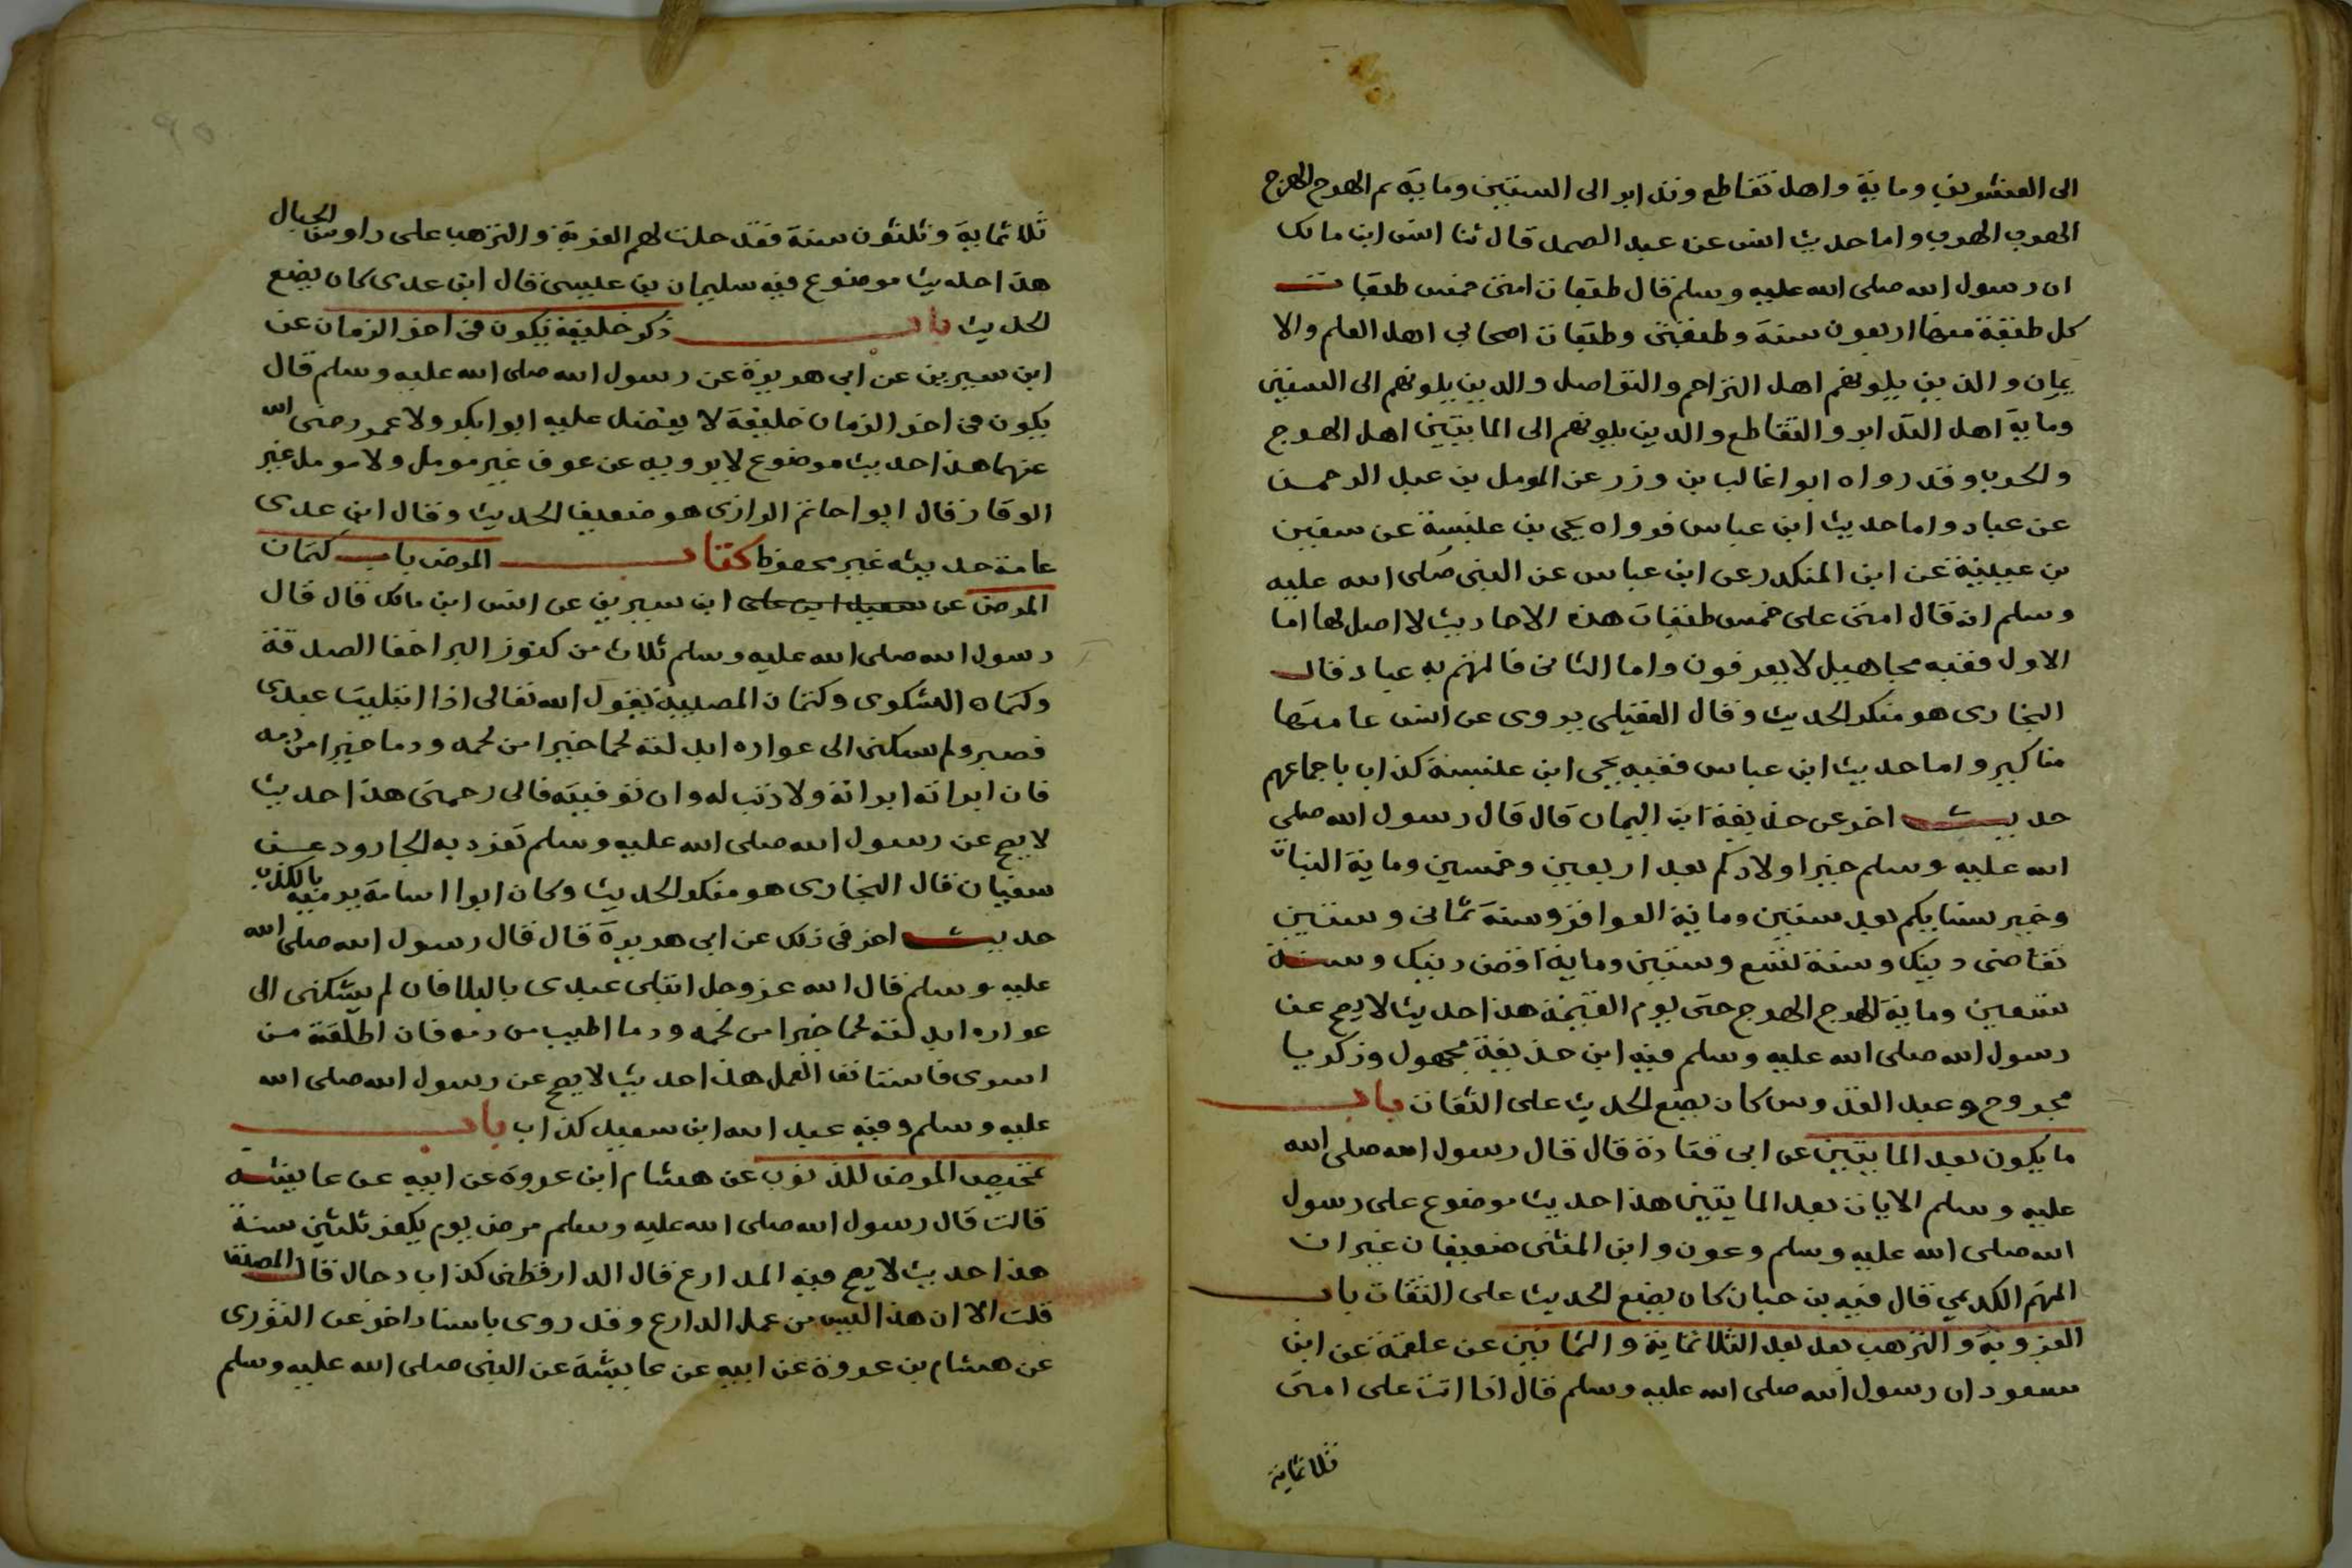 الى العشرين وماية واهل تقاطع وتدابر الى الستين وماية ثم الهرج الهرج
الهرب الهرب واما حديث انس عن عبد الصمد قال ثنا انس ابن مالك
ان رسول الله صلى الله عليه وسلم قال طبقات امتى خمس طبقات
كل طبقة منها اربعون سنة وطبقتى وطبقات اصحابي اهل العلم والا
يمان والذين يلونهم اهل التراحم والتواصل والدين يلونهم الى الستين
وماية اهل التدابر والتقاطع والدين يلونهم الى المايتين اهل الهرج
والحرب وقد رواه ابوا غالب بن وزر عن المومل بن عبد الرحمن
عن عباد واما حديث ابن عباس فرواه يحي بن علبسة عن سفين
بن عيينة عن ابن المنكدر عن ابن عباس عن النبى صلى الله عليه
وسلم انه قال امتى على خمس طبقات هذه الاحاديث لا اصل لها اما
الاول ففيه مجاهيل لا يعرفون واما الثانى فالمتهم به عباد قال
البخارى هو منكر الحديث وقال العقيلى يروى عن انس عامتها
مناكير واما حديث ابن عباس ففيه يحيى ابن علبسة كذاب باجماعهم
حديث اخر عن حذيفة ابن اليمان قال قال رسول الله صلى
الله عليه وسلم خير اولادكم بعد اربعين وخمسين وماية البنات
وخير نسايكم بعد ستين وماية العواقر وسنة ثمانى وستين
تقاضى دينك وسنة تسع وستين وماية اقض دينك وسنة
تسعين وماية الهرج الهرج حتى يوم القيمة هذا حديث لا يصح عن
رسول الله صلى الله عليه وسلم فيه ابن حذيفة مجهول وزكريا
مجروح وعبد القدوس كان يضع الحديث على الثقات باب
ما يكون بعد المايتين عن ابى قتادة قال قال رسول الله صلى الله
عليه وسلم الايات بعد المايتين هذا حديث موضوع على رسول
الله صلى الله عليه وسلم وعون وابن المثنى ضعيفان غير ان
المتهم الكديمي قال فيه بن حبان كان يضع الحديث على الثقات باب
العزوبة والترهب بعد بعد الثلاثماية والثمانين عن علقمة عن ابن
مسعود ان رسول الله صلى الله عليه وسلم قال اذا اتت على امتى
ثلاثماية
ثلاثماية وثلثون سنة فقد حلت لهم العزبة والترهب على راوس الجبال
هذا حديث موضوع فيه سليمان بن عيسى قال ابن عدى كان يضع
الحديث باب ذكر خليفة يكون فى اخر الزمان عن
ابن سيرين عن ابي هريرة عن رسول الله صلى الله عليه وسلم قال
يكون فى اخر الزمان خليفة لا يفضل عليه ابوابكر ولا عمر رضى الله
عنهما هذا حديث موضوع لا يرويه عن عوف غير مومل ولا مومل غير
الوقار قال ابوا حاتم الرازى هو ضعيف الحديث وقال ابن عدى
عامة حديثه غير محفوظ كتاب المرض باب كتمان
المرض عن سعيد ابن على ابن سيرين عن انس ابن مالك قال قال
رسول الله صلى الله عليه وسلم ثلاث من كنوز البر اخفا الصدقة
وكتمان الشكوى وكتمان المصيبة يقول الله تعالى اذا ابتليت عبدى
فصبر ولم يشكنى الى عواره ابدلته لحما خيرا من لحمه ودما خيرا من دمه
فان ابراته ابراته ولا ذنب له وان توفيته فالى رحمتى هذا حديث
لا يصح عن رسول الله صلى الله عليه وسلم تفرد به الجارود عن
سفيان قال البخارى هو منكر الحديث وكان ابوا اسامة يرميه بالكذب
حديث اخر فى ذلك عن ابى هريرة قال قال رسول الله صلى الله
عليه وسلم قال الله عز وجل ابتلى عبدى بالبلا فان لم يشكنى الى
عواده ابدلته لحما خيرا من لحمه ودما اطيب من دمه فان اطلقته من
اسرى فاستانف العمل هذا حديث لا يصح عن رسول الله صلى الله
عليه وسلم وفيه عبد الله ابن سعيد كذاب باب
تمحيص المرض للذنوب عن هشام ابن عروة عن ابيه عن عايشة
قالت قال رسول الله صلى الله عليه وسلم مرض يوم يكفر ثلثين سنة
هذا حديث لا يصح فيه المدارع قال الدارقطنى كذاب دجال قال المصنف
قلت الا ان هذا ليس من عمل الدارع وقد روى باسناد اخر عن الثورى
عن هشام بن عروة عن ابيه عن عايشة عن النبى صلى الله عليه وسلم